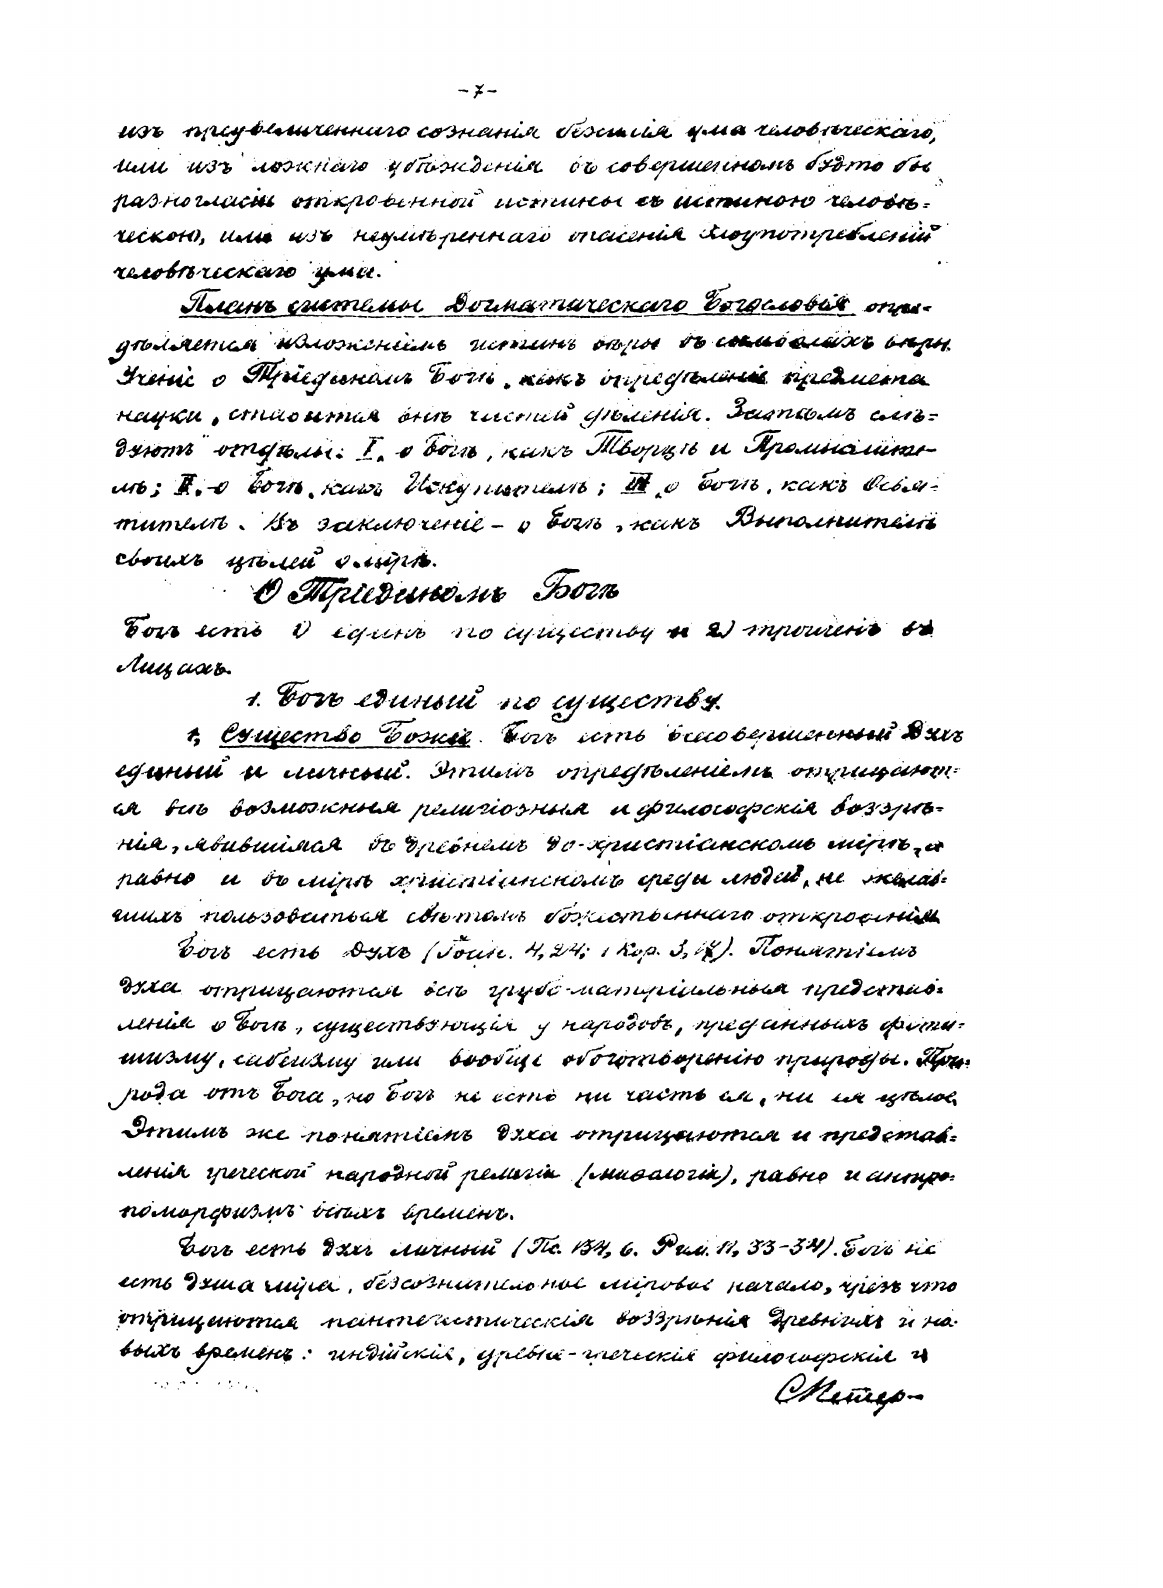 -7-
изъ преувеличеннаго сознанія безсилія ума человѣческаго,
или изъ ложнаго убѣжденія въ совершенномъ будто бы
разногласіи откровенной истины съ истиною человѣ=
ческою, или изъ неумѣреннаго опасенія злоупотребленій
человѣческаго ума.
Планъ системы Догматическаго Богословія опре=
дѣляется изложеніемъ истинъ вѣры въ символахъ вѣры.
Ученіе о Тріединомъ Богѣ, какъ опредѣленіе предмета
науки, ставится внѣ частей дѣленія. Затѣмъ слѣ=
дуютъ отдѣлы: I. о Богѣ, какъ Творцѣ и Промыслите-
лѣ; II. о Богѣ, какъ Искупителѣ; III. о Богѣ, какъ Освя=
тителѣ. Въ заключеніе - о Богѣ, какъ Выполнителѣ
своихъ цѣлей о мірѣ.
О Тріединомъ Богѣ
Богъ есть 1) единъ по существу и 2) троиченъ въ
Лицахъ.
1. Богъ единый по существу.
1, Существо Божіе. Богъ есть всесовершенный Духъ
единый и личный. Этимъ опредѣленіемъ отрицают=
ся всѣ возможныя религіозныя и философскія воззрѣ=
нія, явившіяся въ древнемъ до-христіанскомъ мірѣ, а
равно и въ мірѣ христіанскомъ среди людей, не желав=
шихъ пользоваться свѣтомъ божественнаго откровенія
Богъ есть духъ (Іоан. 4, 24; 1 Кор. 3, 17). Понятіемъ
духа отрицаются всѣ грубо-матеріальныя представ=
ленія о Богѣ, существующія у народовъ, преданныхъ фети=
шизму, сабеизму или вообще обоготворенію природы. При=
рода отъ Бога, но Богъ не есть ни часть ея, ни ея цѣлое.
Этимъ же понятіемъ духа отрицаются и представ=
ленія греческой народной религіи (миѳологія), равно и антро=
поморфизмъ всѣхъ временъ.
Богъ есть духъ личный (Пс. 134, 6. Рим. 11, 33-34). Богъ не
есть душа міра, безсознательное міровое начало, чрезъ что
отрицаются пантеистическія воззрѣнія древнихъ и но=
выхъ временъ: индійскія, древне-греческія философскія и